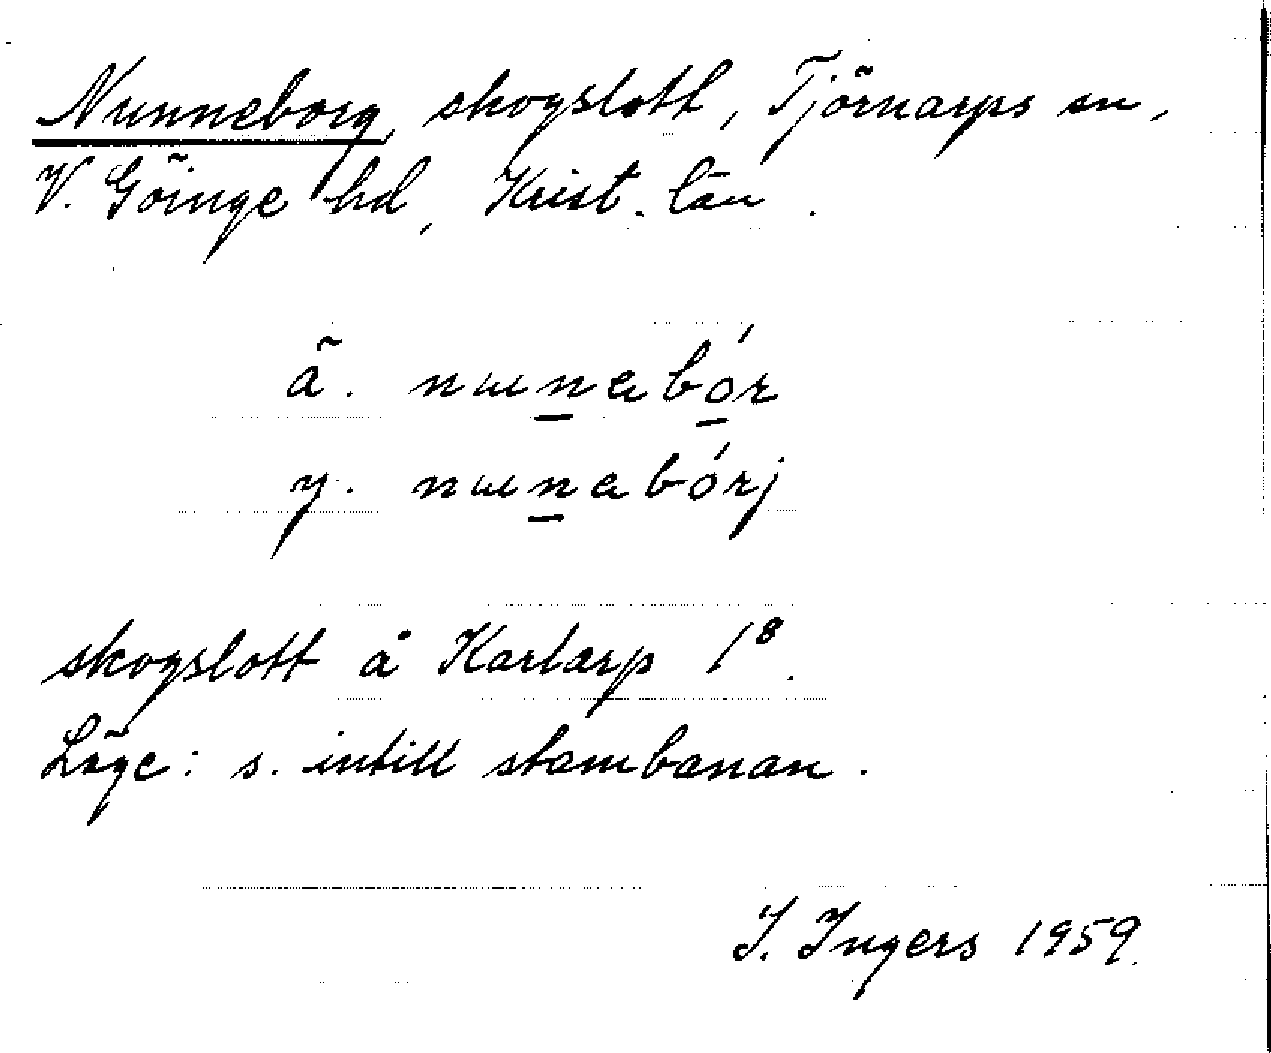 Nunneborg, skogslott, Tjörnarps sn,
V. Göinge hd, Krist. län.
ä. nunabór
y. nunabórj
skogslott å Karlarp 1⁸.
Läge: s. intill stambanan.
I. Ingers 1959.